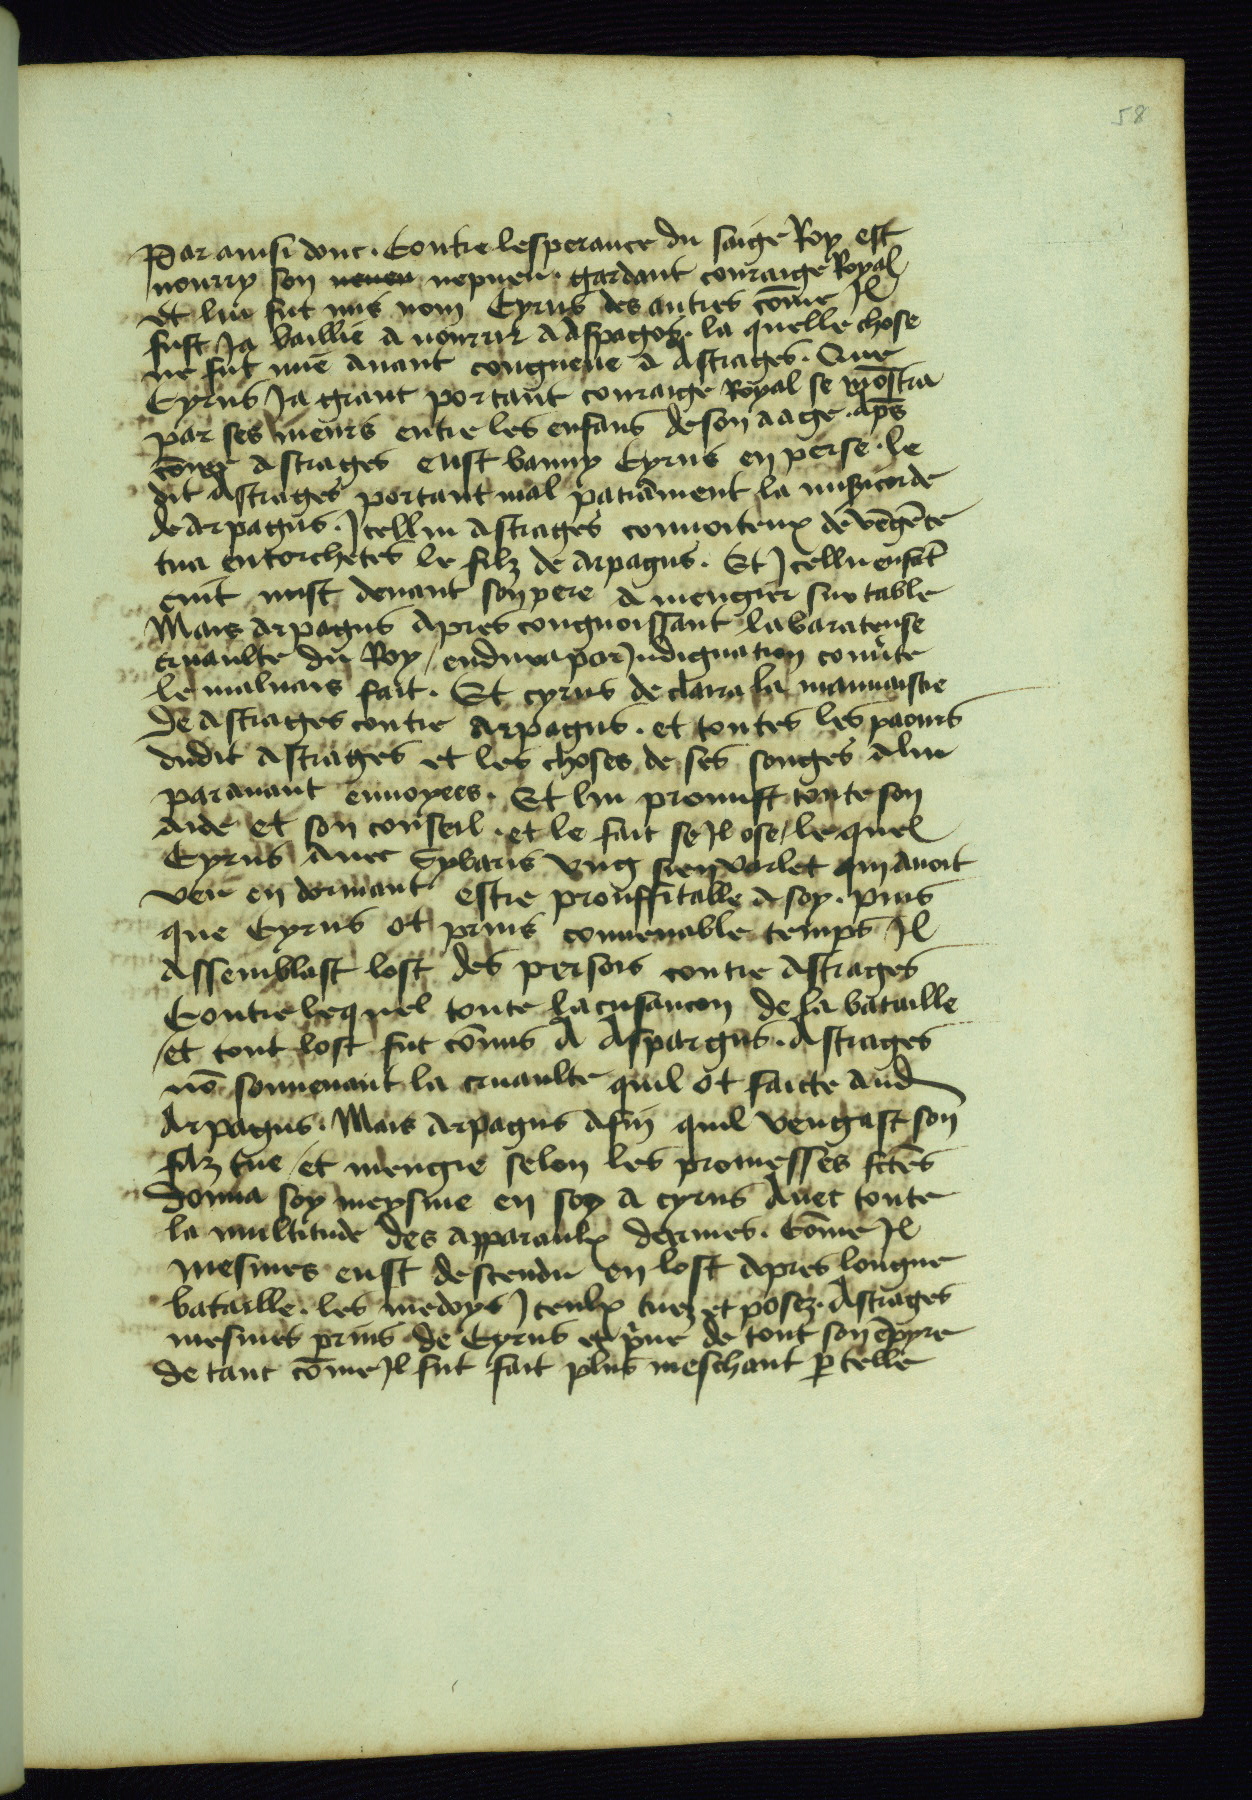 58
Par ainsi donc . Contre lesperance du saige Roy est
nourry son neueu nepueu . gardant couraige Royal
et lui fut mis nom Cyrus des autres cōme Il
fust Ja baillie a nourrir a Aspagos . la quelle chose
ne fut mie auant congneue a Astrages . Que
Cyrus Ja grant portant couraige Royal se mōstra
par ses meurs entre les enfans de son aage . ap̄s
Astrages eust banny Cyrus en perse . le
dit Astrages portant mal patiāment la misicorde
de Arpagus . Icellui Astrages conuoiteux de vēgēce
tua en torchetes le filz de Arpagus . Et Icellui enfāt
cuit mist deuant son pere a mengier sur table
Mais Arpagus apres congnoissant la barateuse
cruaulte du Roy / endura por Indignation couute
le maluais fait . Et cyrus declaira la mauuaistie
de Astrages contre Arpagus . et toutes les paours
dudit Astrages et les choses de ses songes a lui
parauant enuoyees . Et lui promist toute son
aide et son conseil . et le fait se Il ose / le quel
Cyrus auec Sybaris vng sien varlet qui auoit
veu en dormant estre prouffitable a soy . puis
que Cyrus ot prins conuenable temps Il
assemblast lost des persois contre Astrages
Contre lequel toute la cusancon de la bataille
et tout lost fut cōmis a Aspargus . Astrages
nō souuenant la cruaulte quil ot faicte aud
Arpagus . Mais Arpagus afin quil vengast son
filz tue / et mengie selon les promesses fctēs
donna soy meysme en soy a cyrus auec toute
la multitude des apparaulx darmes . Cōme Il
mesmes eust descendu en lost apres longue
bataille . les medoys Iceulx tuez et posez . Astrages
mesmes prins de Cyrus et p̓ue de tout son ēpyre
de tant cōme Il fut fait plus meschant p telle